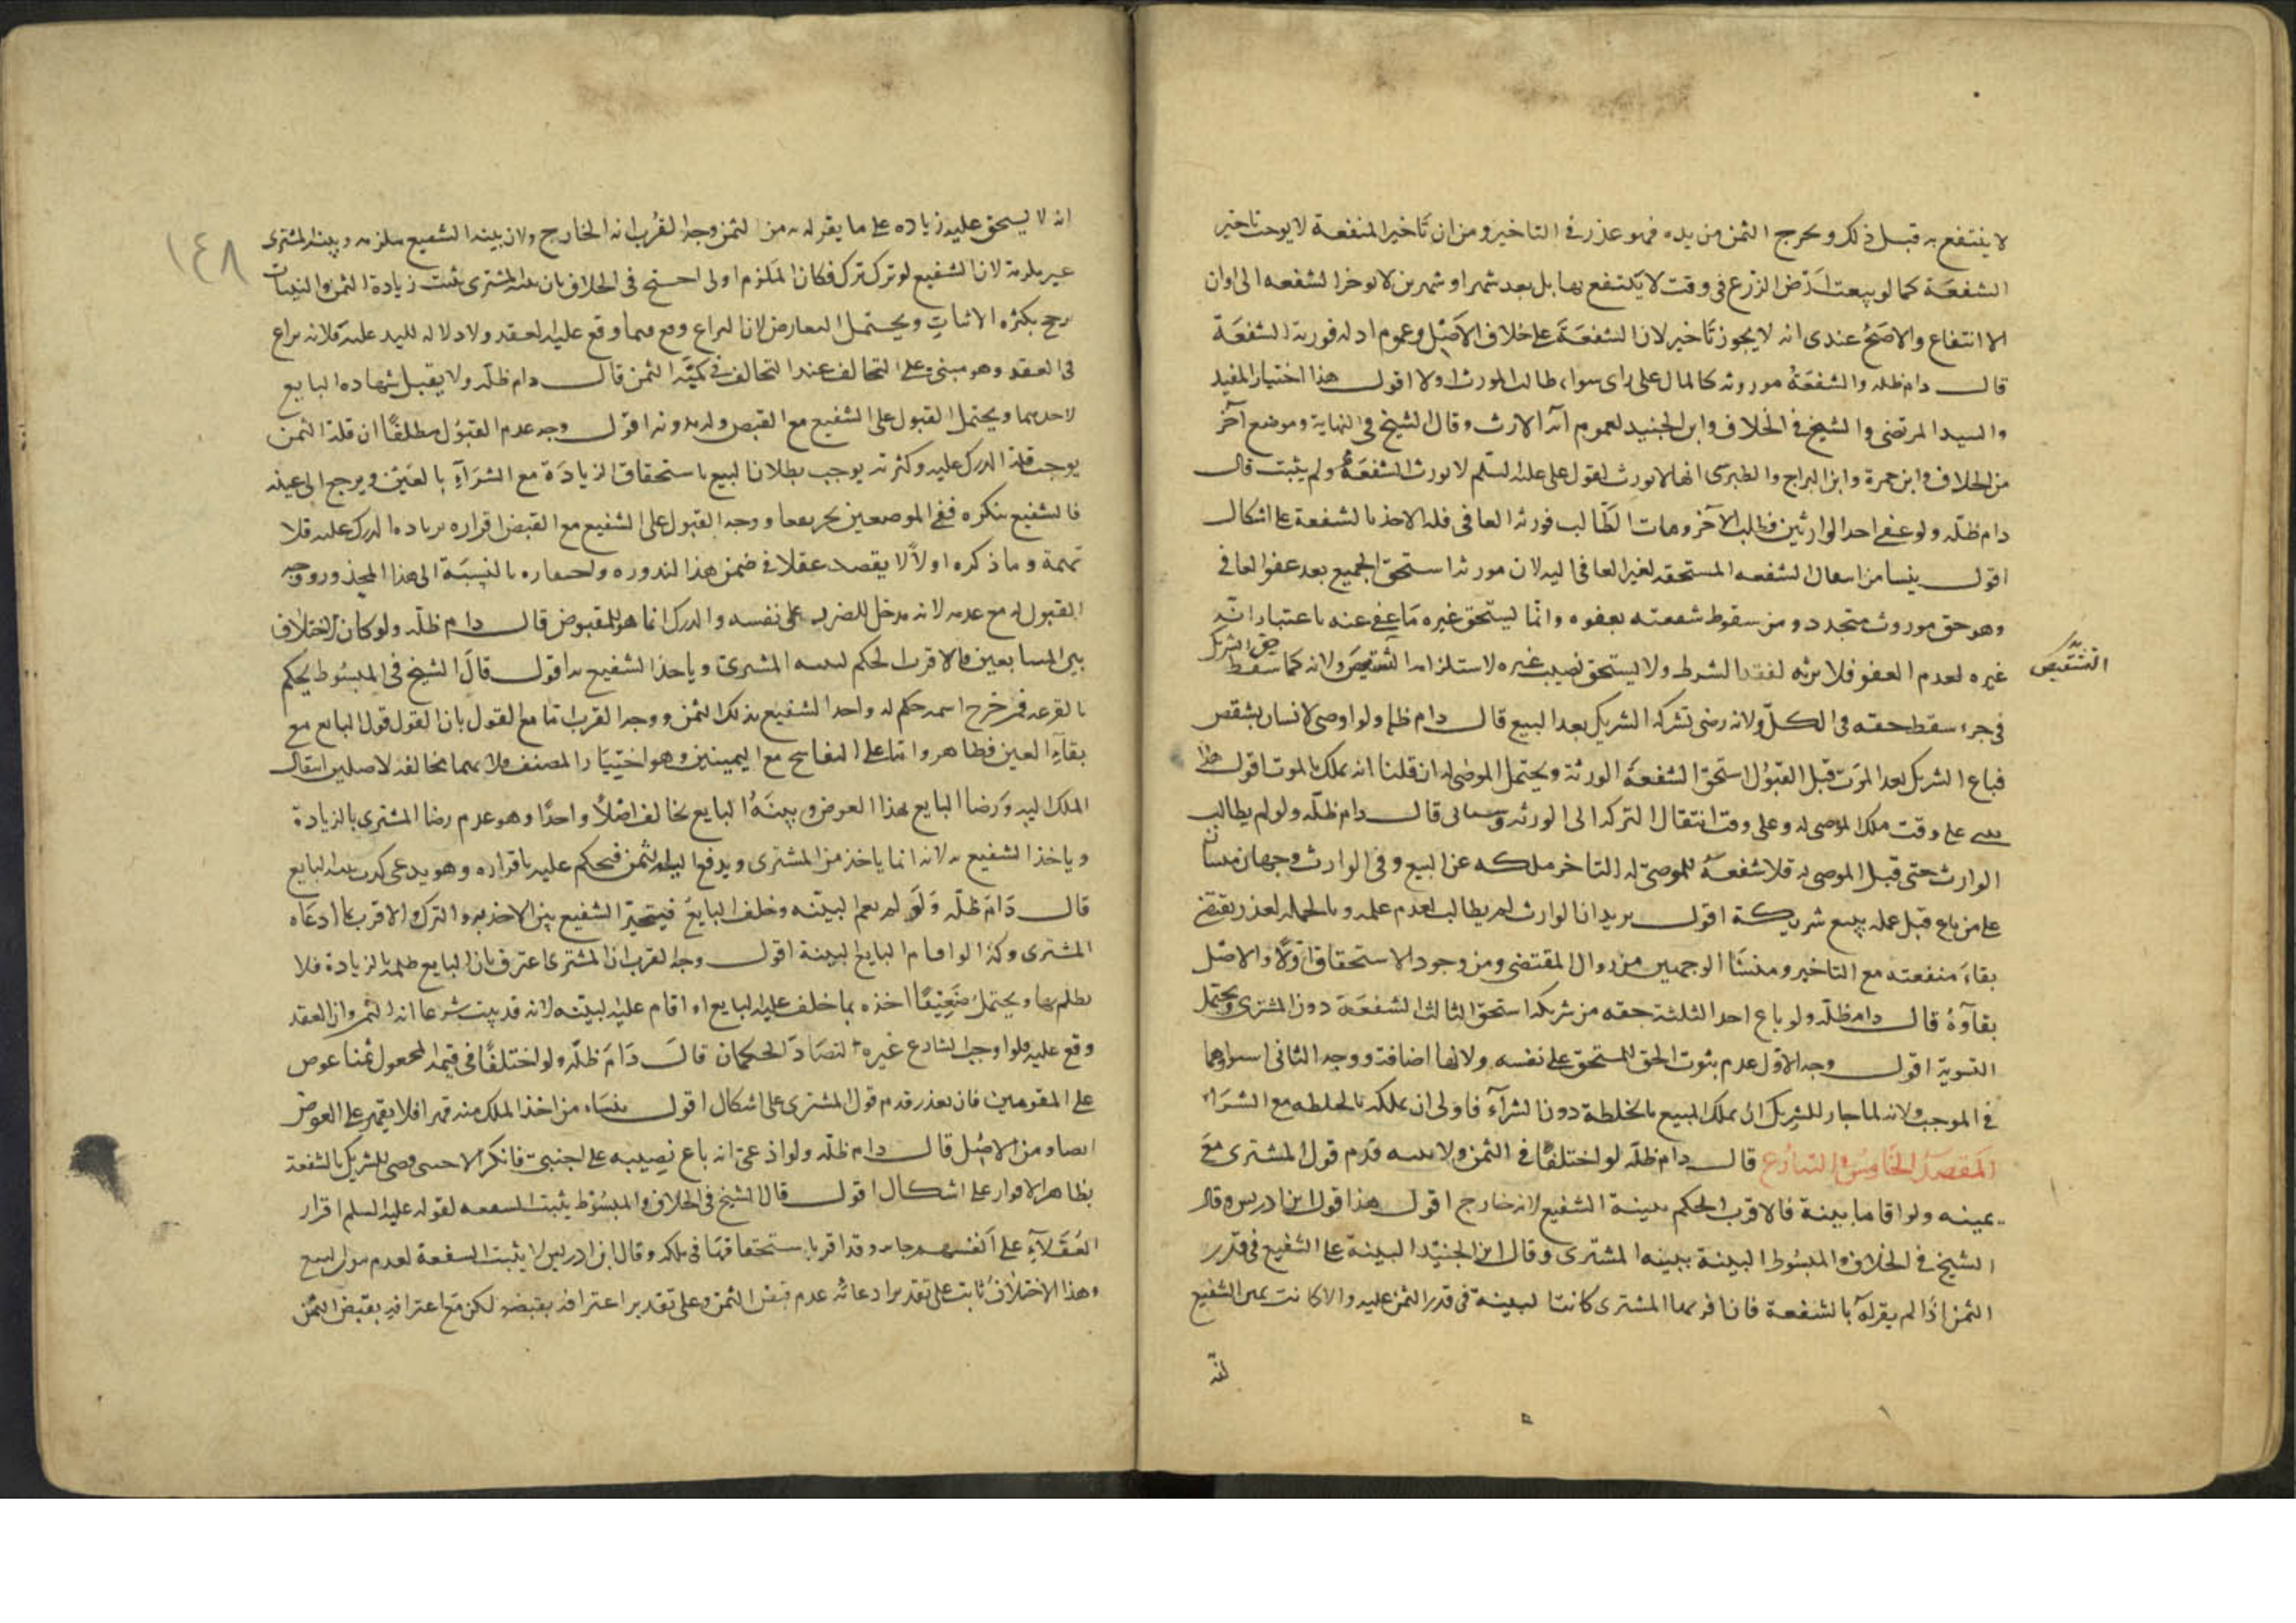 لا ينتفع به قبل ذلك ويخرج الثمن من يده فهو عذر في التاخير ومن ان تاخير المنفعة لا يوجب تاخير
الشفعة كما لو بيعت ارض الزرع في وقت لا ينتفع بها بل بعد شهر او شهرين لا يوخر الشفعه الى اوان
الانتفاع والاصح عندى انه لا يجوز تاخير لان الشفعة على خلاف الاصل وعموم ادله فورية الشفعة
قال دام ظله والشفعة موروثه كالمال على راى سواء طالب المورث اولا اقول هذا اختيار المفيد
والسيد المرتضى والشيخ في الخلاف وابن الجنيد لعموم آية الارث وقال الشيخ في النهاية وموضع آخر
من الخلاف وابن حمزة وابن البراج والطبرسى انها لا تورث لقول على عليه السلم لا تورث الشفعة ولم يثبت قال
دام ظله ولو عفى احد الوارثين فطلب الآخر ومات الطالب فورثه العافى فله الاخذ بالشفعة على اشكال
اقول ينشا من انتقال الشفعه المستحقه لغير العافى اليه لان مورثه استحق الجميع بعد عفو العافى
وهو حق موروث متجدد ومن سقوط شفعته بعفوه وانما يستحق غيره ما عفى عنه باعتبار ارث
غيره لعدم العفو فلا يرثه لفقد الشرط ولا يستحق نصيب غيره لاستلزامه التبعيض ولانه كما سقط حق الشريك
التشقيص
في جزء سقط حقه في الكل ولانه رضى بشركة الشريك بعد البيع قال دام ظله ولو اوصى لانسان بشقص
فباع الشريك بعد الموت قبل القبول استحق الشفعة الورثة ويحتمل الموصى له ان قلنا انه يملك بالموت اقول هذا
على وقت ملك الموصى له وعلى وقت انتقال التركه الى الورثه قال دام ظله ولو لم يطالب
الوارث حتى قبل الموصى له فلا شفعة للموصى له لتاخر ملكه عن البيع وفي الوارث وجهان مبنيان
على من باع قبل علمه ببيع شريكه اقول يريد ان الوارث لم يطالب لعدم علمه وبالجملة لعذر يقتضى
بقاء منفعته مع التاخير ومنشا الوجهين من زوال المقتضى ومن وجود الاستحقاق اولا والاصل
بقاؤه قال دام ظله ولو باع احد الثلثة حقه من شريكه استحق الثالث الشفعة دون المشترى ويحتمل
التسوية اقول وجه الاول عدم ثبوت الحق للمستحق على نفسه ولانها اضافة ووجه الثانى استواؤهما
في الموجب ولانه لما جاز للشريك ان يملك المبيع بالخلطة دون الشراء فاولى ان يملكه بالخلطه مع الشراء
المقصد الخامس في التنازع قال دام ظله لو اختلفا في الثمن ولا بينه قدم قول المشترى مع
يمينه ولو اقاما بينة فالاقرب الحكم ببينة الشفيع لانه خارج اقول هذا قول ابن ادريس وقال
الشيخ في الخلاف والمبسوط البينة بينه المشترى وقال ابن الجنيد البينة على الشفيع في قدر
الثمن اذا لم يقر له بالشفعة فان اقر بها المشترى كانت البينة في قدر الثمن عليه والا كانت يمين الشفيع
انه
١٤٨
انه لا يستحق عليه زياده على ما يقر له به من الثمن وجه القرب انه الخارج ولان بينه الشفيع ملزمه وبينه المشترى
غير ملزمة لان الشفيع لو ترك ترك فكان الملزم اولى احتج في الخلاف بان بينه المشترى تثبت زيادة الثمن والبينات
ترجح بكثره الاثبات ويحتمل التعارض لان النزاع وقع فيما وقع عليه العقد ولا دلاله لليد عليه فلانه نزاع
في العقد وهو مبنى على التحالف عند التحالف في كمية الثمن قال دام ظله ولا يقبل شهاده البايع
لاحدهما ويحتمل القبول على الشفيع مع القبض وله بدونه اقول وجه عدم القبول مطلقا ان قلة الثمن
يوجب قلة الدرك عليه وكثرته يوجب بطلان البيع باستحقاق الزيادة مع الشراء بالعين ويرجع الى عينه
فالشفيع ينكره ففي الموضعين يجر نفعا ووجه القبول على الشفيع مع القبض اقراره بزيادة الدرك عليه فلا
تهمة وما ذكره اولا لا يقصد عقلا في ضمن هذا لندوره واحتقاره بالنسبة الى هذا المحذور ووجه
القبول له مع عدمه لانه مدخل للضرر على نفسه والدرك انما هو للمقبوض قال دام ظله ولو كان الاختلاف
بين المتبايعين فالاقرب الحكم لبينه المشترى وياخذ الشفيع به اقول قال الشيخ في المبسوط يحكم
بالقرعه فمن خرج اسمه حكم له واخذ الشفيع بذلك الثمن ووجه القرب اما مع القول بان القول قول البايع مع
بقاء العين فظاهر واما على التفاسخ مع اليمينين وهو اختيار المصنف فلان بينهما مخالفه لاصلين انتقال
الملك اليه ورضا البايع بهذا العوض وبينة البايع تخالف اصلا واحدا وهو عدم رضا المشترى بالزيادة
وياخذ الشفيع به لانه انما ياخذ من المشترى ويدفع اليه الثمن فيحكم عليه باقراره وهو يدعى كذب بينه البايع
قال دام ظله ولو لم يقم البينه وحلف البايع فيتخير الشفيع بين الاخذ به والترك والاقرب بما ادعاه
المشترى وكذا لو اقام البايع البينة اقول وجه القرب ان المشترى اعترف بان البايع ظلمه بالزيادة فلا
يظلم بها ويحتمل ضعيفا اخذه بما حلف عليه البايع او اقام عليه البينه لانه قد يثبت شرعا انه الثمن وان العقد
وقع عليه فلو اوجب الشارع غيره لتضاد الحكمان قال دام ظله ولو اختلفا في قيمة المجعول ثمنا عوض
على المقومين فان تعذر قدم قول المشترى على اشكال اقول ينشاء من اخذ الملك منه قهرا فلا يقهر على العوض
ايضا ومن الاصل قال دام ظله ولو ادعى انه باع نصيبه على اجنبى فانكر الاجنبى قضى للشريك بالشفعة
بظاهر الاقرار على اشكال اقول قال الشيخ في الخلاف والمبسوط يثبت الشفعه لقوله عليه السلم اقرار
العقلاء على انفسهم جايز وقد اقر باستحقاقها في ملكه وقال ابن ادريس لا يثبت الشفعة لعدم ثبوت البيع
وهذا الاختلاف ثابت على تقدير ادعائه عدم قبض الثمن وعلى تقدير اعترافه بقبضه لكن مع اعترافه بقبض الثمن